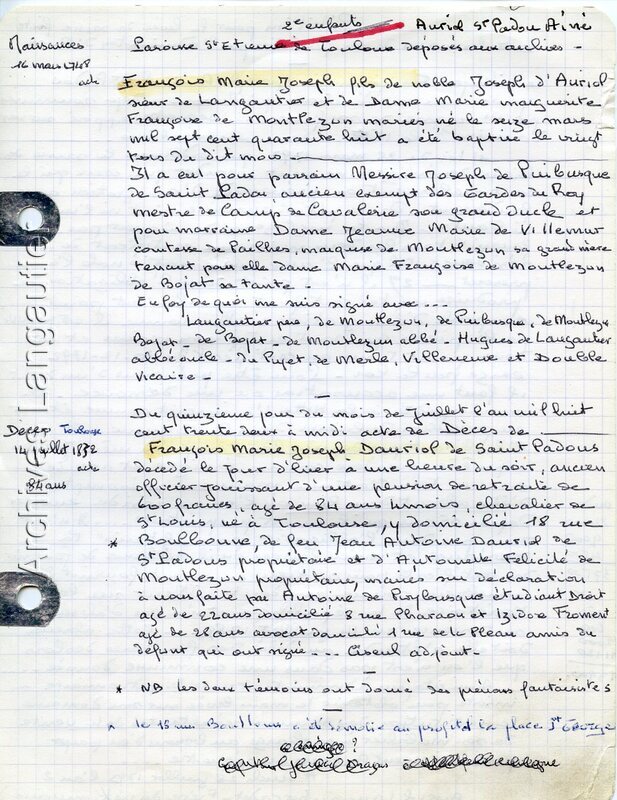 2e enfants Auriol St Padou Aîné
Naissances
16 mars 1748
acte
Paroisse St Etienne de Toulouse déposés aux archives -
François Marie Joseph fils de noble Joseph d'Auriol
sieur de Langautier et de Dame Marie marguerite
Françoise de Montlezun mariés né le seize mars
mil sept cent quarante huit a été baptisé le vingt
trois du dit mois
Il a eut pour parrain Messire Joseph de Puibusque
de Saint Padou, ancien exempt des Gardes du Roy
mestre de Camp de Cavalerie son grand oncle et
pour marraine Dame Jeanne Marie de Villemur
comtesse de Pailhes, marquise de Montlezun sa grand mère
tenant pour elle dame Marie Françoise de Montlezun
de Bojat sa tante -
En foy de quoi me suis signé avec ---
Langautier père, de Montlezun, de Puibusque, de Montlezun
Bojat - de Bojat - de Montlezun abbé - Hugues de Langautier
abbé oncle - du Pujet, de Merle, Villeneuve et Double
Vicaire -
Deces Toulouse
14 juillet 1832
acte
84 ans
Du quinzième jour du mois de Juillet l'an mil huit
cent trente deux à midi acte de Décès de
François Marie Joseph Dauriol de Saint Padous
décédé le jour d'hier à une heure du soir, ancien
officier jouissant d'une pension de retraite de
600 francs, agé de 84 ans 4 mois, chevalier de
St Louis, né à Toulouse, y domicilié 18 rue
* Boulbonne, de feu Jean Antoine Dauriol de
St Padous propriétaire et d'Antoinette Felicité de
Montlezon propriétaire, mariés sur déclaration
à nous faite par Antoine de Puybusque étudiant Droit
agé de 22 ans domicilié 8 rue Pharaon et Izidore Froment
agé de 28 ans avocat domicilié 1 rue de la Pleau amis du
défunt qui ont signé --- Ciseul adjoint.
* NB les deux témoins ont donné des prénoms fantaisistes
* le 18 rue Boulbonne a été démolie au profit de la place St George
?
Archives Langautier